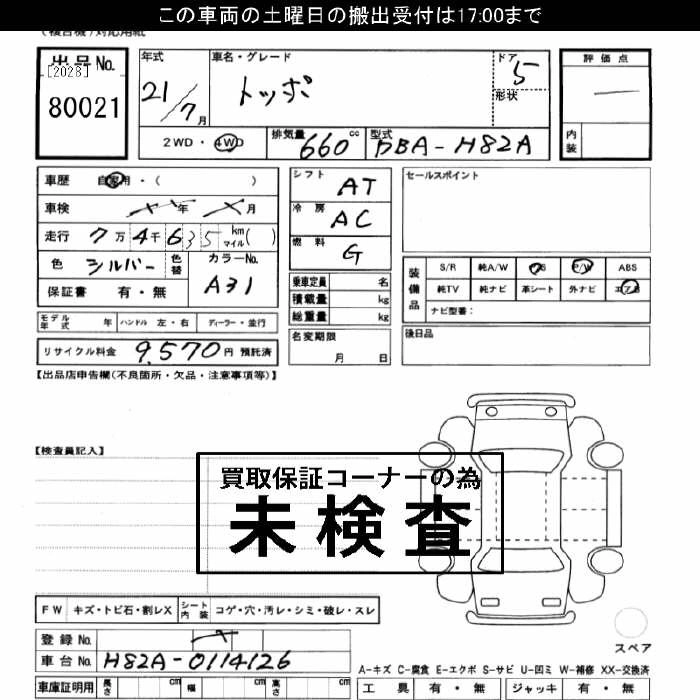 この車両の土曜日の搬出受付は17:00まで
(複合機)対応用紙
出品No.
[2028]
80021
年式
21/7月
車名・グレード
トッポ
ドア 5
形状
評価点
内装
2WD・4WD
排気量 660cc
型式 DBA-H82A
車歴 自家用・( )
車検 年 月
走行 7万4千635 km マイル( )
色 シルバー 色替
カラーNo. A31
保証書 有・無
シフト AT
冷房 AC
燃料 G
乗車定員 名
積載量 kg
総重量 kg
名変期限 月 日
セールスポイント
装備品
S/R 純A/W P/S P/W ABS
純TV 純ナビ 革シート 外ナビ エアB
ナビ型番:
後日品
モデル年式 年 ハンドル 左・右 ディーラー・並行
リサイクル料金 9,570円 預託済
【出品店申告欄(不良箇所・欠品・注意事項等)】
【検査員記入】
買取保証コーナーの為
未検査
FW キズ・トビ石・割レX シート内装 コゲ・穴・汚レ・シミ・破レ・スレ
スペア
登録No.
車台No. H82A-0114126
A-キズ C-腐食 E-エクボ S-サビ U-凹ミ W-補修 XX-交換済
車庫証明用 長さ cm 幅 cm 高さ cm
工具 有・無 ジャッキ 有・無